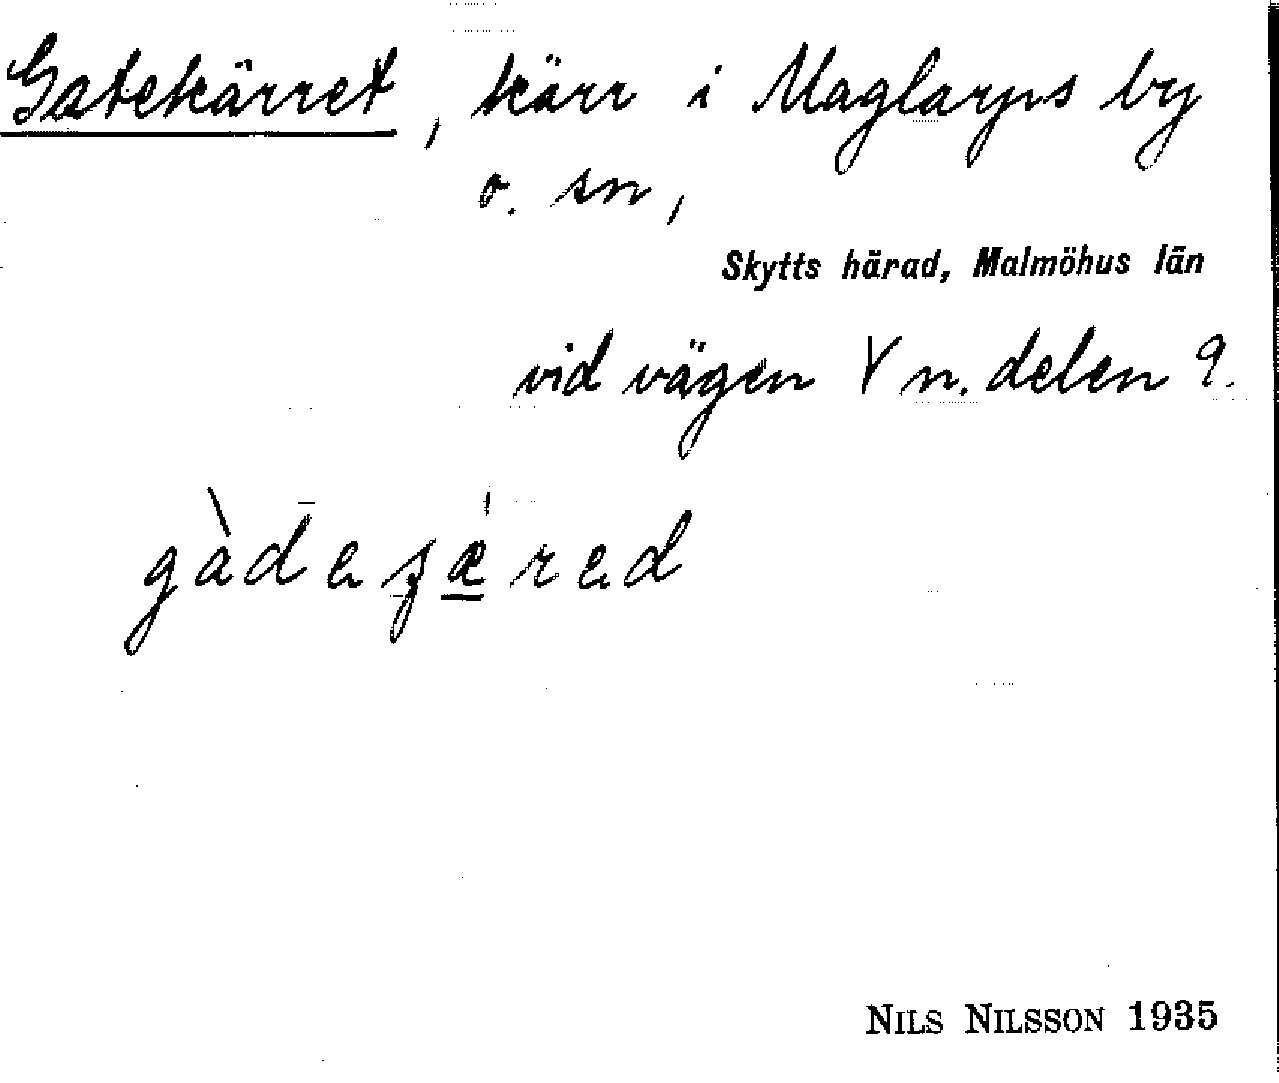 Gatekärret, kärr i Maglarps by
o. sn,
Skytts härad, Malmöhus län
vid vägen V n. delen
NILS NILSSON 1935